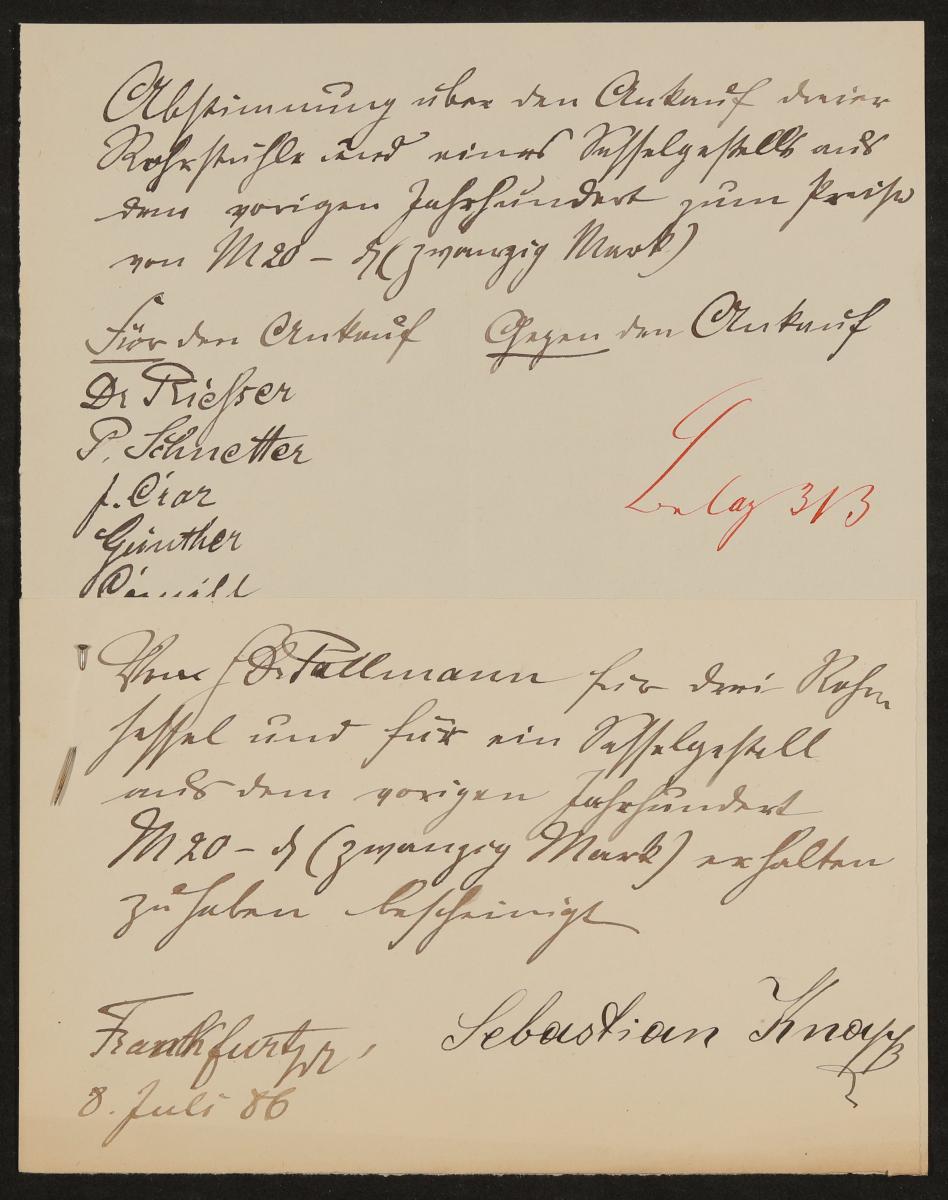 Abstimmung über den Ankauf dreier
Rohrstühle und eines Sesselgestells aus
dem vorigen Jahrhundert zum Preise
von M 20 – ₰ (zwanzig Mark)
Für den Ankauf Gegen den Ankauf
Dr Riesser
P. Schnetter
Günther
Beleg 313
Von Dr Pallmann für drei Rohr
sessel und für ein Sesselgestell
aus dem vorigen Jahrhundert
M 20 – ₰ (zwanzig Mark) erhalten
zu haben bescheinigt
Frankfurt
Sebastian Knapp
8. Juli 86